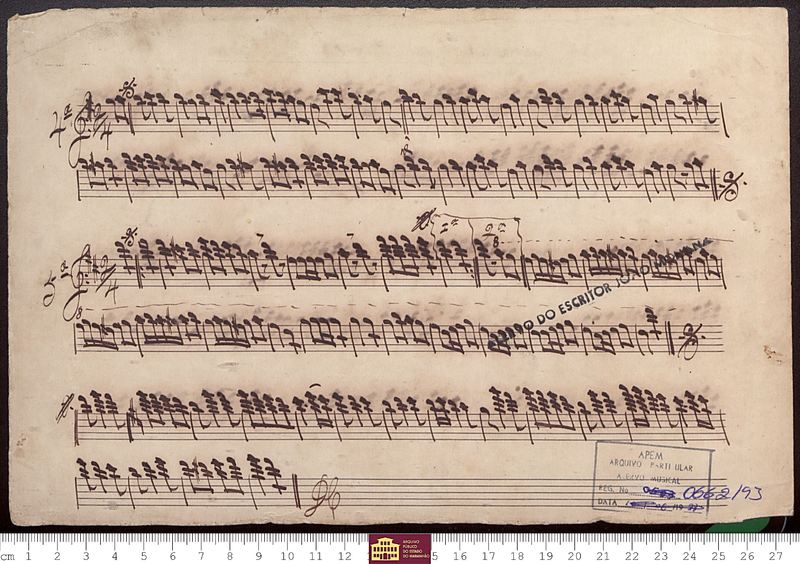 4ª
1ª 2ª
8
5ª
8
DO ESCRITOR JOÃO
DC
APEM
ARQUIVO PARTICULAR
ACERVO MUSICAL
REG. No 0662/93
DATA
cm 1 2 3 4 5 6 7 8 9 10 11 12 15 16 17 18 19 20 21 22 23 24 25 26 27
ARQUIVO
PÚBLICO
DO ESTADO
DO MARANHÃO